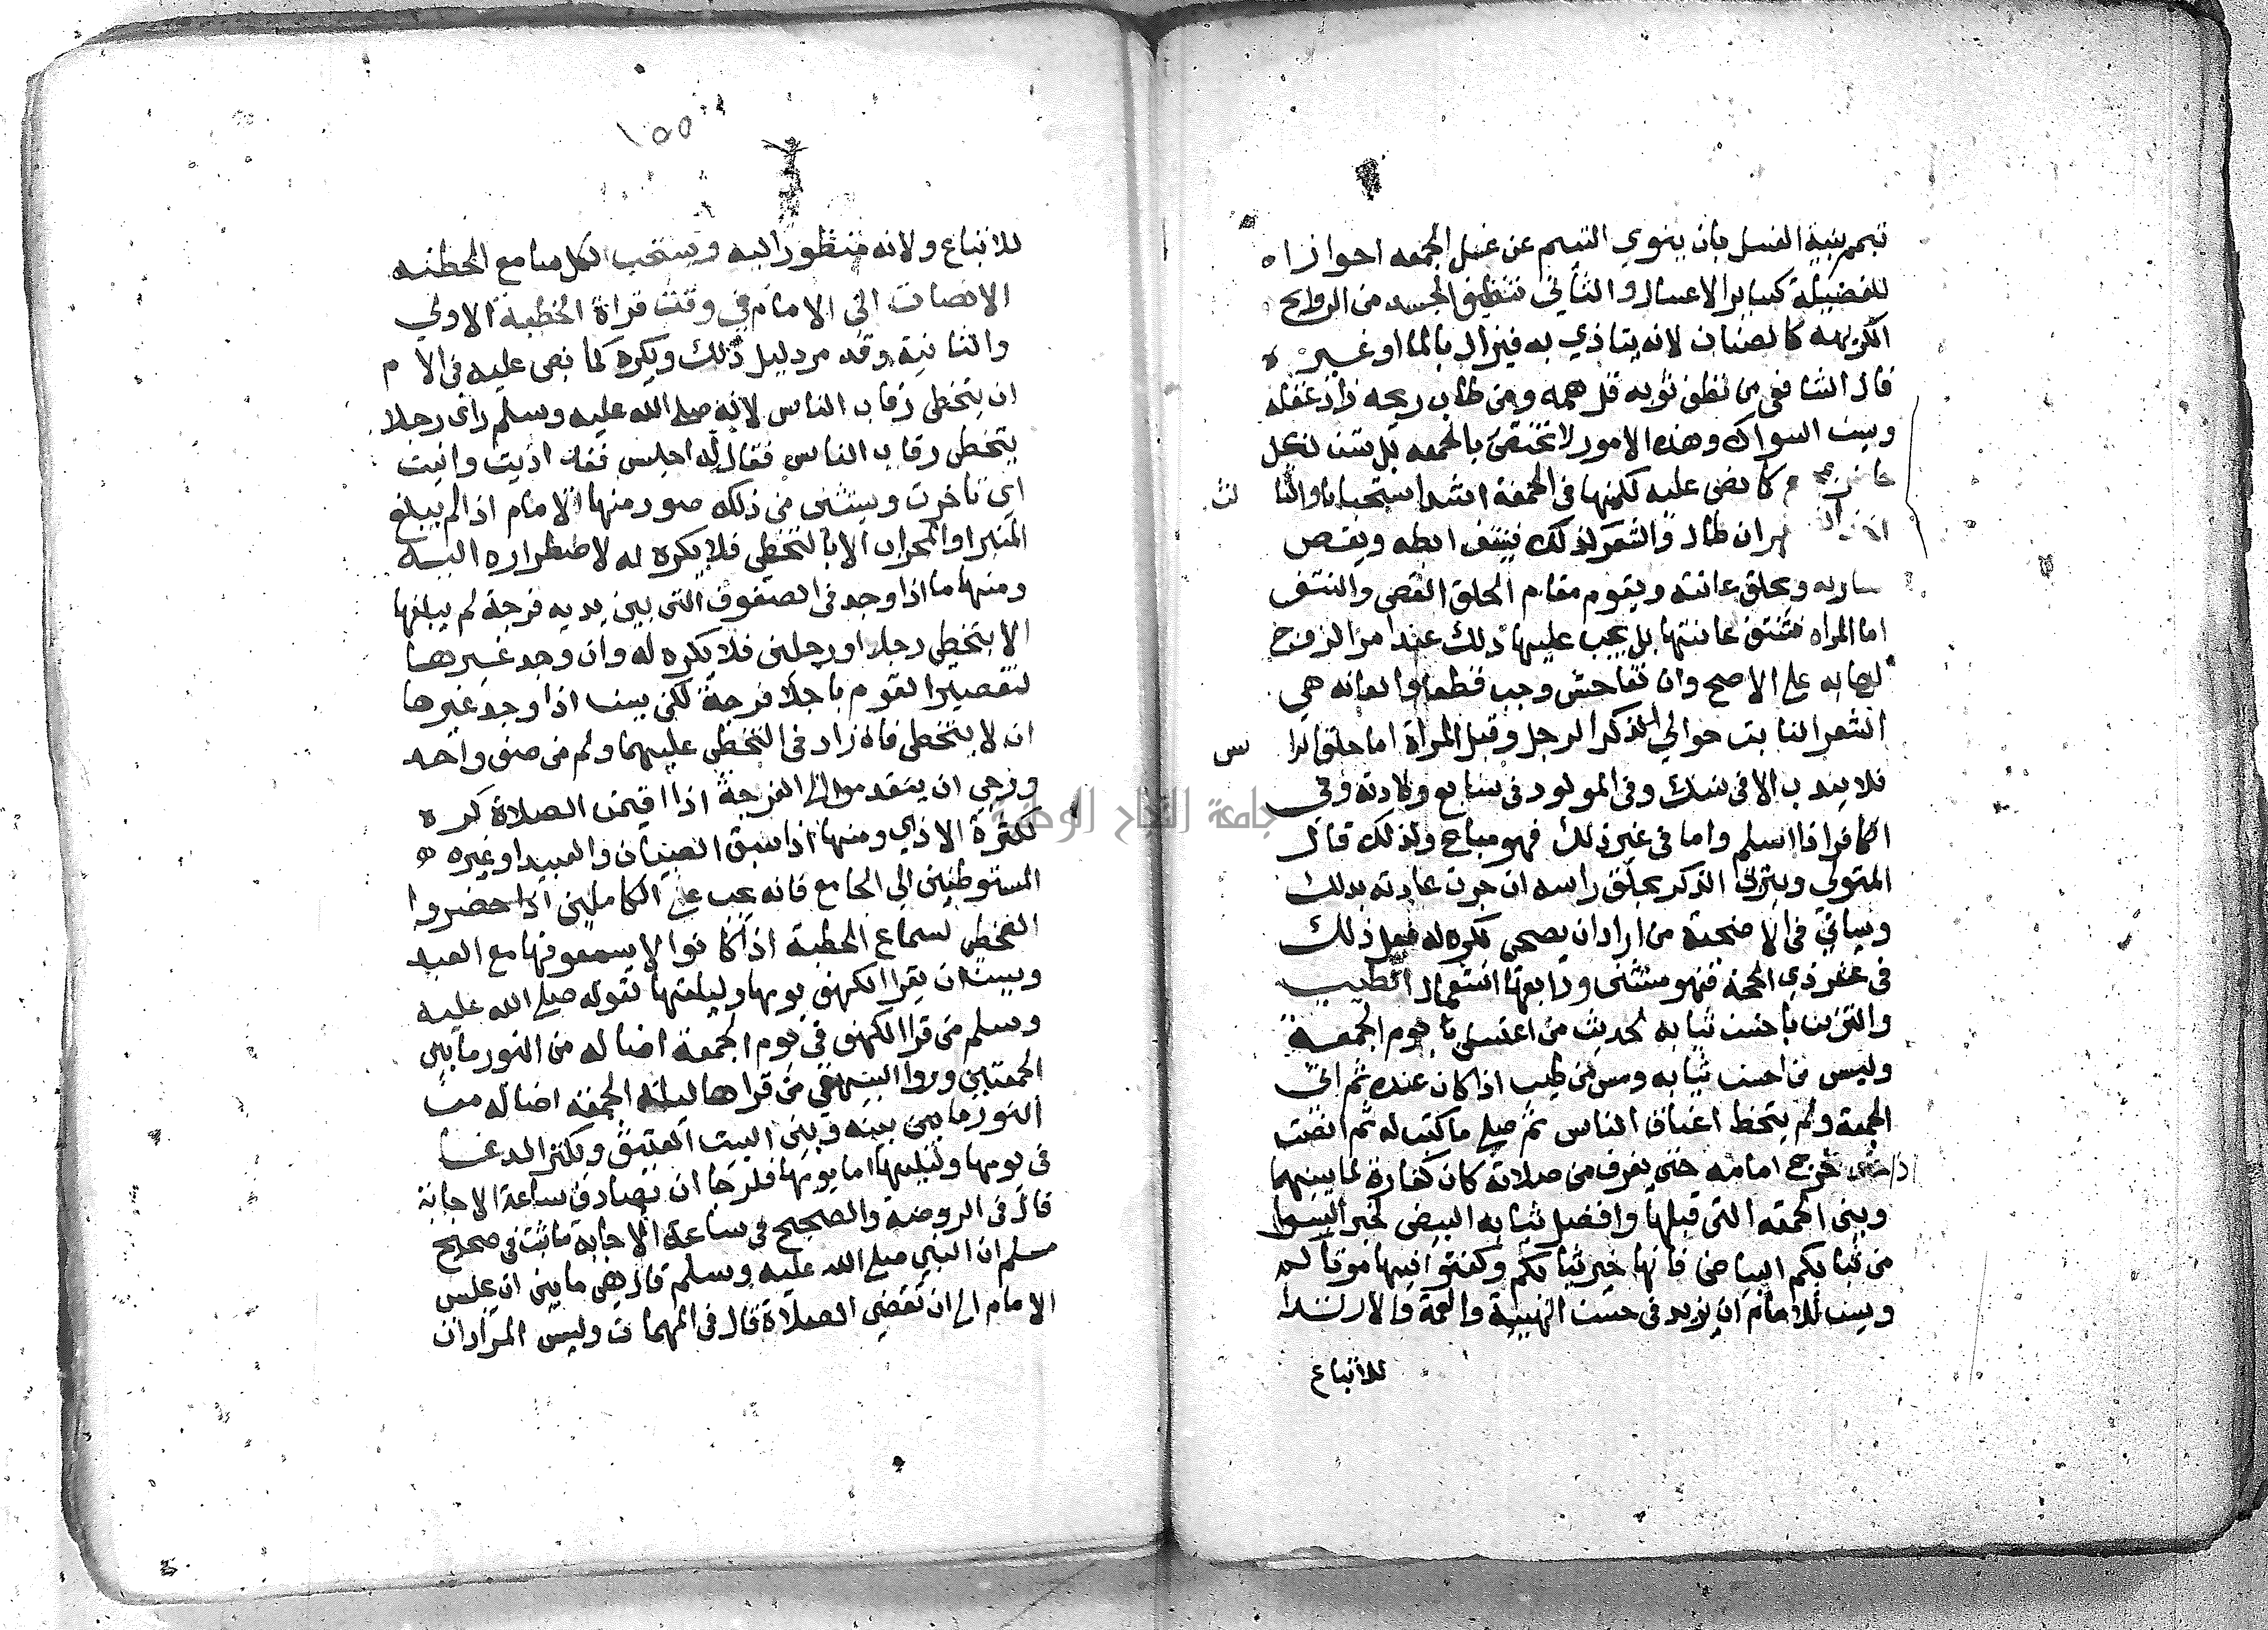 تيمم بنية الغسل بان ينوي التيمم عن غسل الجمعه احرازاه
للفضيلة كساير الاغسال والثاني تنظيف الجسد من الروايح
الكريهه كالصنان لانه يتاذي به فيزال بالما او غيره
قال الشافعي من نظف ثوبه قل همه ومن طاب ريحه زاد عقله
ويسن السواك وهذه الامور لا تختص بالجمعه بل تسن لكل
كما نص عليه لكنها في الجمعة اشد استحبابا والثالث
ان طال والشعر كذلك فينتف ابطه ويقص
شاربه ويحلق عانته ويقوم مقام الحلق القص والنتف
اما المراه فتنتف عانتها بل يجب عليها ذلك عند امر الزوج
لها به على الاصح وان تفاحش وجب قطعا والعانه هي
الشعر النابت حوالي الذكر الرجل وقبل المراة اما حلق الراس
فلا يندب الا في نسك وفي المولود في سابع ولادته وفي
الكافر اذا اسلم واما في غير ذلك فهو مباح ولذلك قال
المتولي ويتزين الذكر بحلق راسه ان جرت عادته بذلك
وسياتي في الاضحية من اراد ان يضحي يكره له فعل ذلك
في عشر ذي الحجة فهو مستثنى ورابعها استعمال الطيب
والتزين باحسن ثيابه لحديث من اغتسل يوم الجمعة
ولبس من احسن ثيابه ومس من طيب اذا كان عنده ثم اتى
الجمعة ولم يتخط اعناق الناس ثم صلى ما كتب له ثم انصت
اذا خرج امامه حتى يفرغ من صلاته كان كفارة لما بينهما
وبين الجمعه التي قبلها وافضل ثيابه البيض لخبر البسوا
من ثيابكم البياض فانها خير ثيابكم وكفنوا فيها موتاكم
ويسن للامام ان يزيد في حسن الهيية والعمة والارتدا
للاتباع
١٥٥
للاتباع ولانه منظور اليه ويستحب لكل سامع الخطبه
الانصات الى الامام في وقت قراة الخطبة الاولي
والثانية وقد مر دليل ذلك ويكره كما نص عليه في الام
ان يتخطى رقاب الناس لانه صلى الله عليه وسلم راى رجلا
يتخطى رقاب الناس فقال له اجلس فقد اذيت وانيت
اي تاخرت ويستثنى من ذلك صور منها الامام اذا لم يبلغ
المنبر او المحراب الا بالتخطي فلا يكره له لاضطراره اليه
ومنها ما اذا وجد في الصفوف التي بين يديه فرجة لم يبلغها
الا بتخطي رجل او رجلين فلا يكره له وان وجد غيرها
لتقصير القوم باخلا فرجة لكن يسن اذا وجد غيرها
ان لا يتخطى فان زاد في التخطي عليهما ولم من صف واحد
ورجي ان يتقدموا الى الفرجة اذا اقيمت الصلاة كره
لكثرة الاذي ومنها اذا سبق الصبيان والعبيد او غيره
المستوطنين الي الجامع فانه يجب على الكاملين اذا حضروا
التخطي لسماع الخطبة اذا كانوا لا يسمعونها مع البعد
ويسن ان يقرا الكهف يومها وليلتها لقوله صلى الله عليه
وسلم من قرا الكهف في يوم الجمعة اضا له من النور ما بين
الجمعتين وروا البيهقي من قراها ليلة الجمعة اضا له من
النور ما بين بينه وبين البيت العتيق ويكثر الدعا
في يومها وليلتها اما يومها فلرجا ان يصادف ساعة الاجابة
قال في الروضة والصحيح في ساعة الاجابة ما ثبت في صحيح
مسلم ان النبي صلى الله عليه وسلم قال هي ما بين ان يجلس
الامام الى ان تقضي الصلاة قال في المهمات وليس المراد ان
جامعة النجاح الوطنية